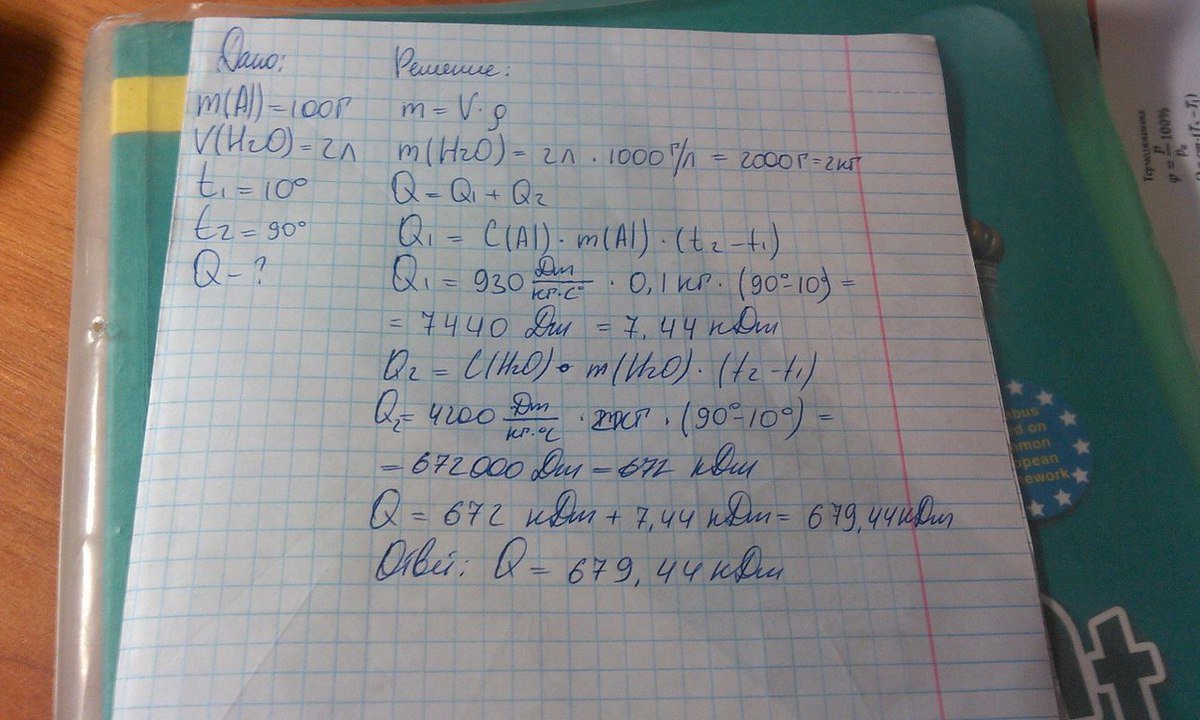 Дано:
m(Al)=100г
V(H2O)=2л
t1=10°
t2=90°
Q-?
Решение:
m=V·ρ
m(H2O)=2л·1000г/л=2000г=2кг
Q=Q1+Q2
Q1=C(Al)·m(Al)·(t2-t1)
Q1=930 Дж/кг·С°·0,1кг·(90°-10°)=
=7440 Дж=7,44 кДж
Q2=C(H2O)·m(H2O)·(t2-t1)
Q2=4200 Дж/кг·°С·2кг·(90°-10°)=
=672000 Дж=672 кДж
Q=672 кДж+7,44 кДж=679,44кДж
Ответ: Q=679,44кДж
Термодинамика
φ=p/p0 100%